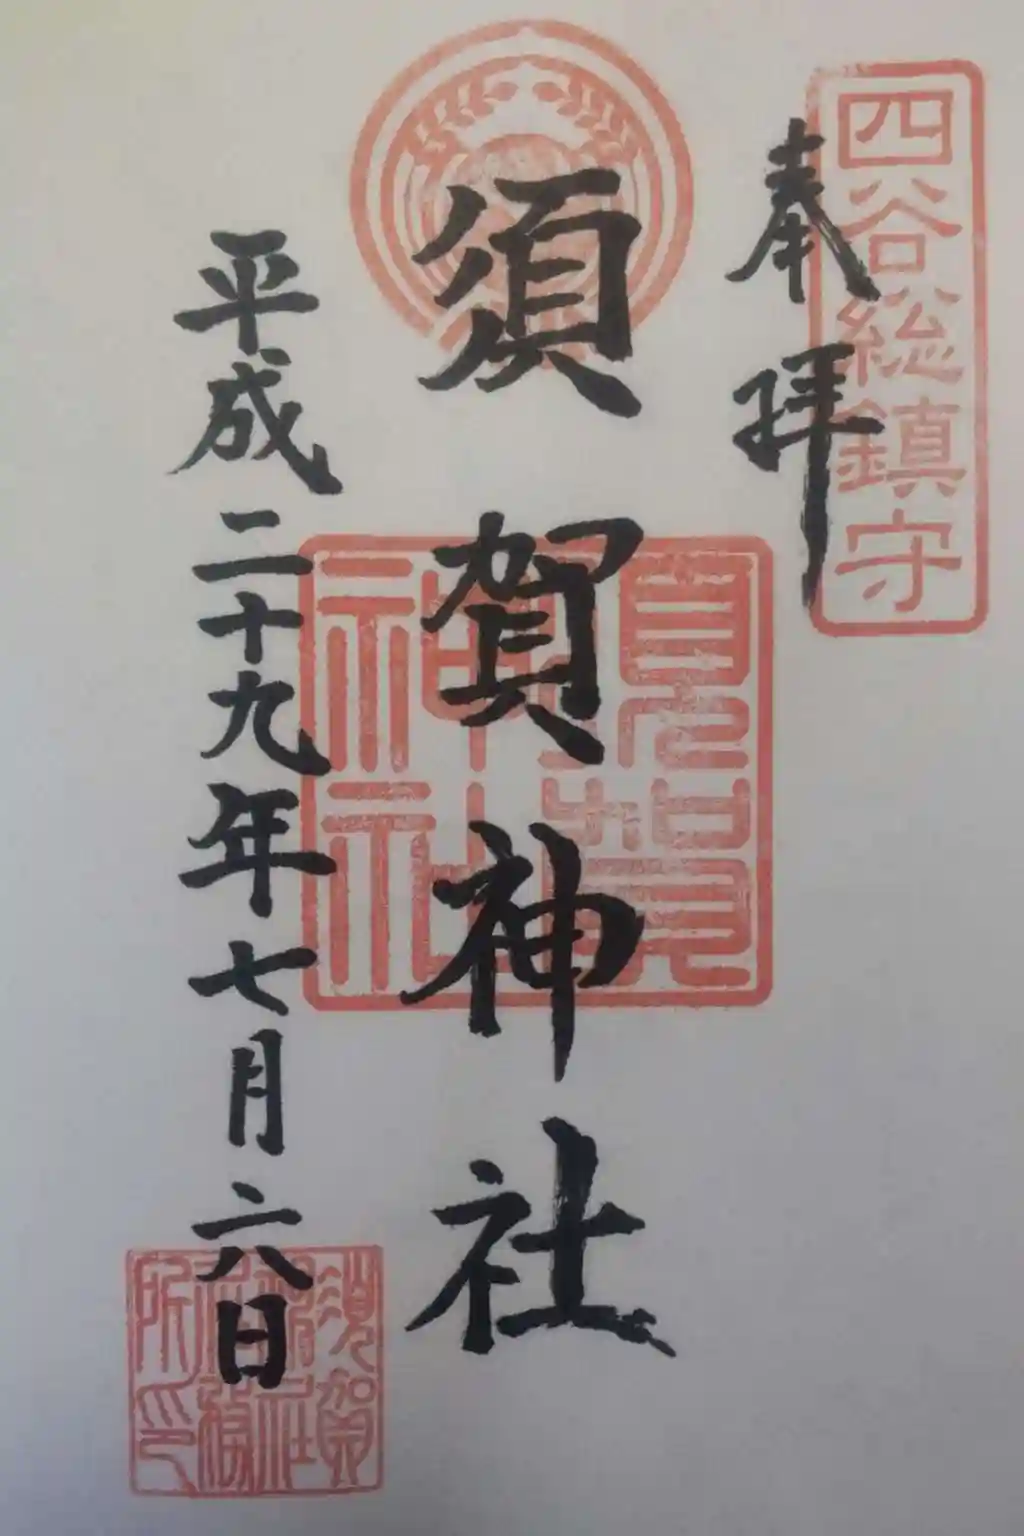 四谷総鎮守
奉拝
須賀神社
須賀神社
平成二十九年七月六日
須賀神社社務所印